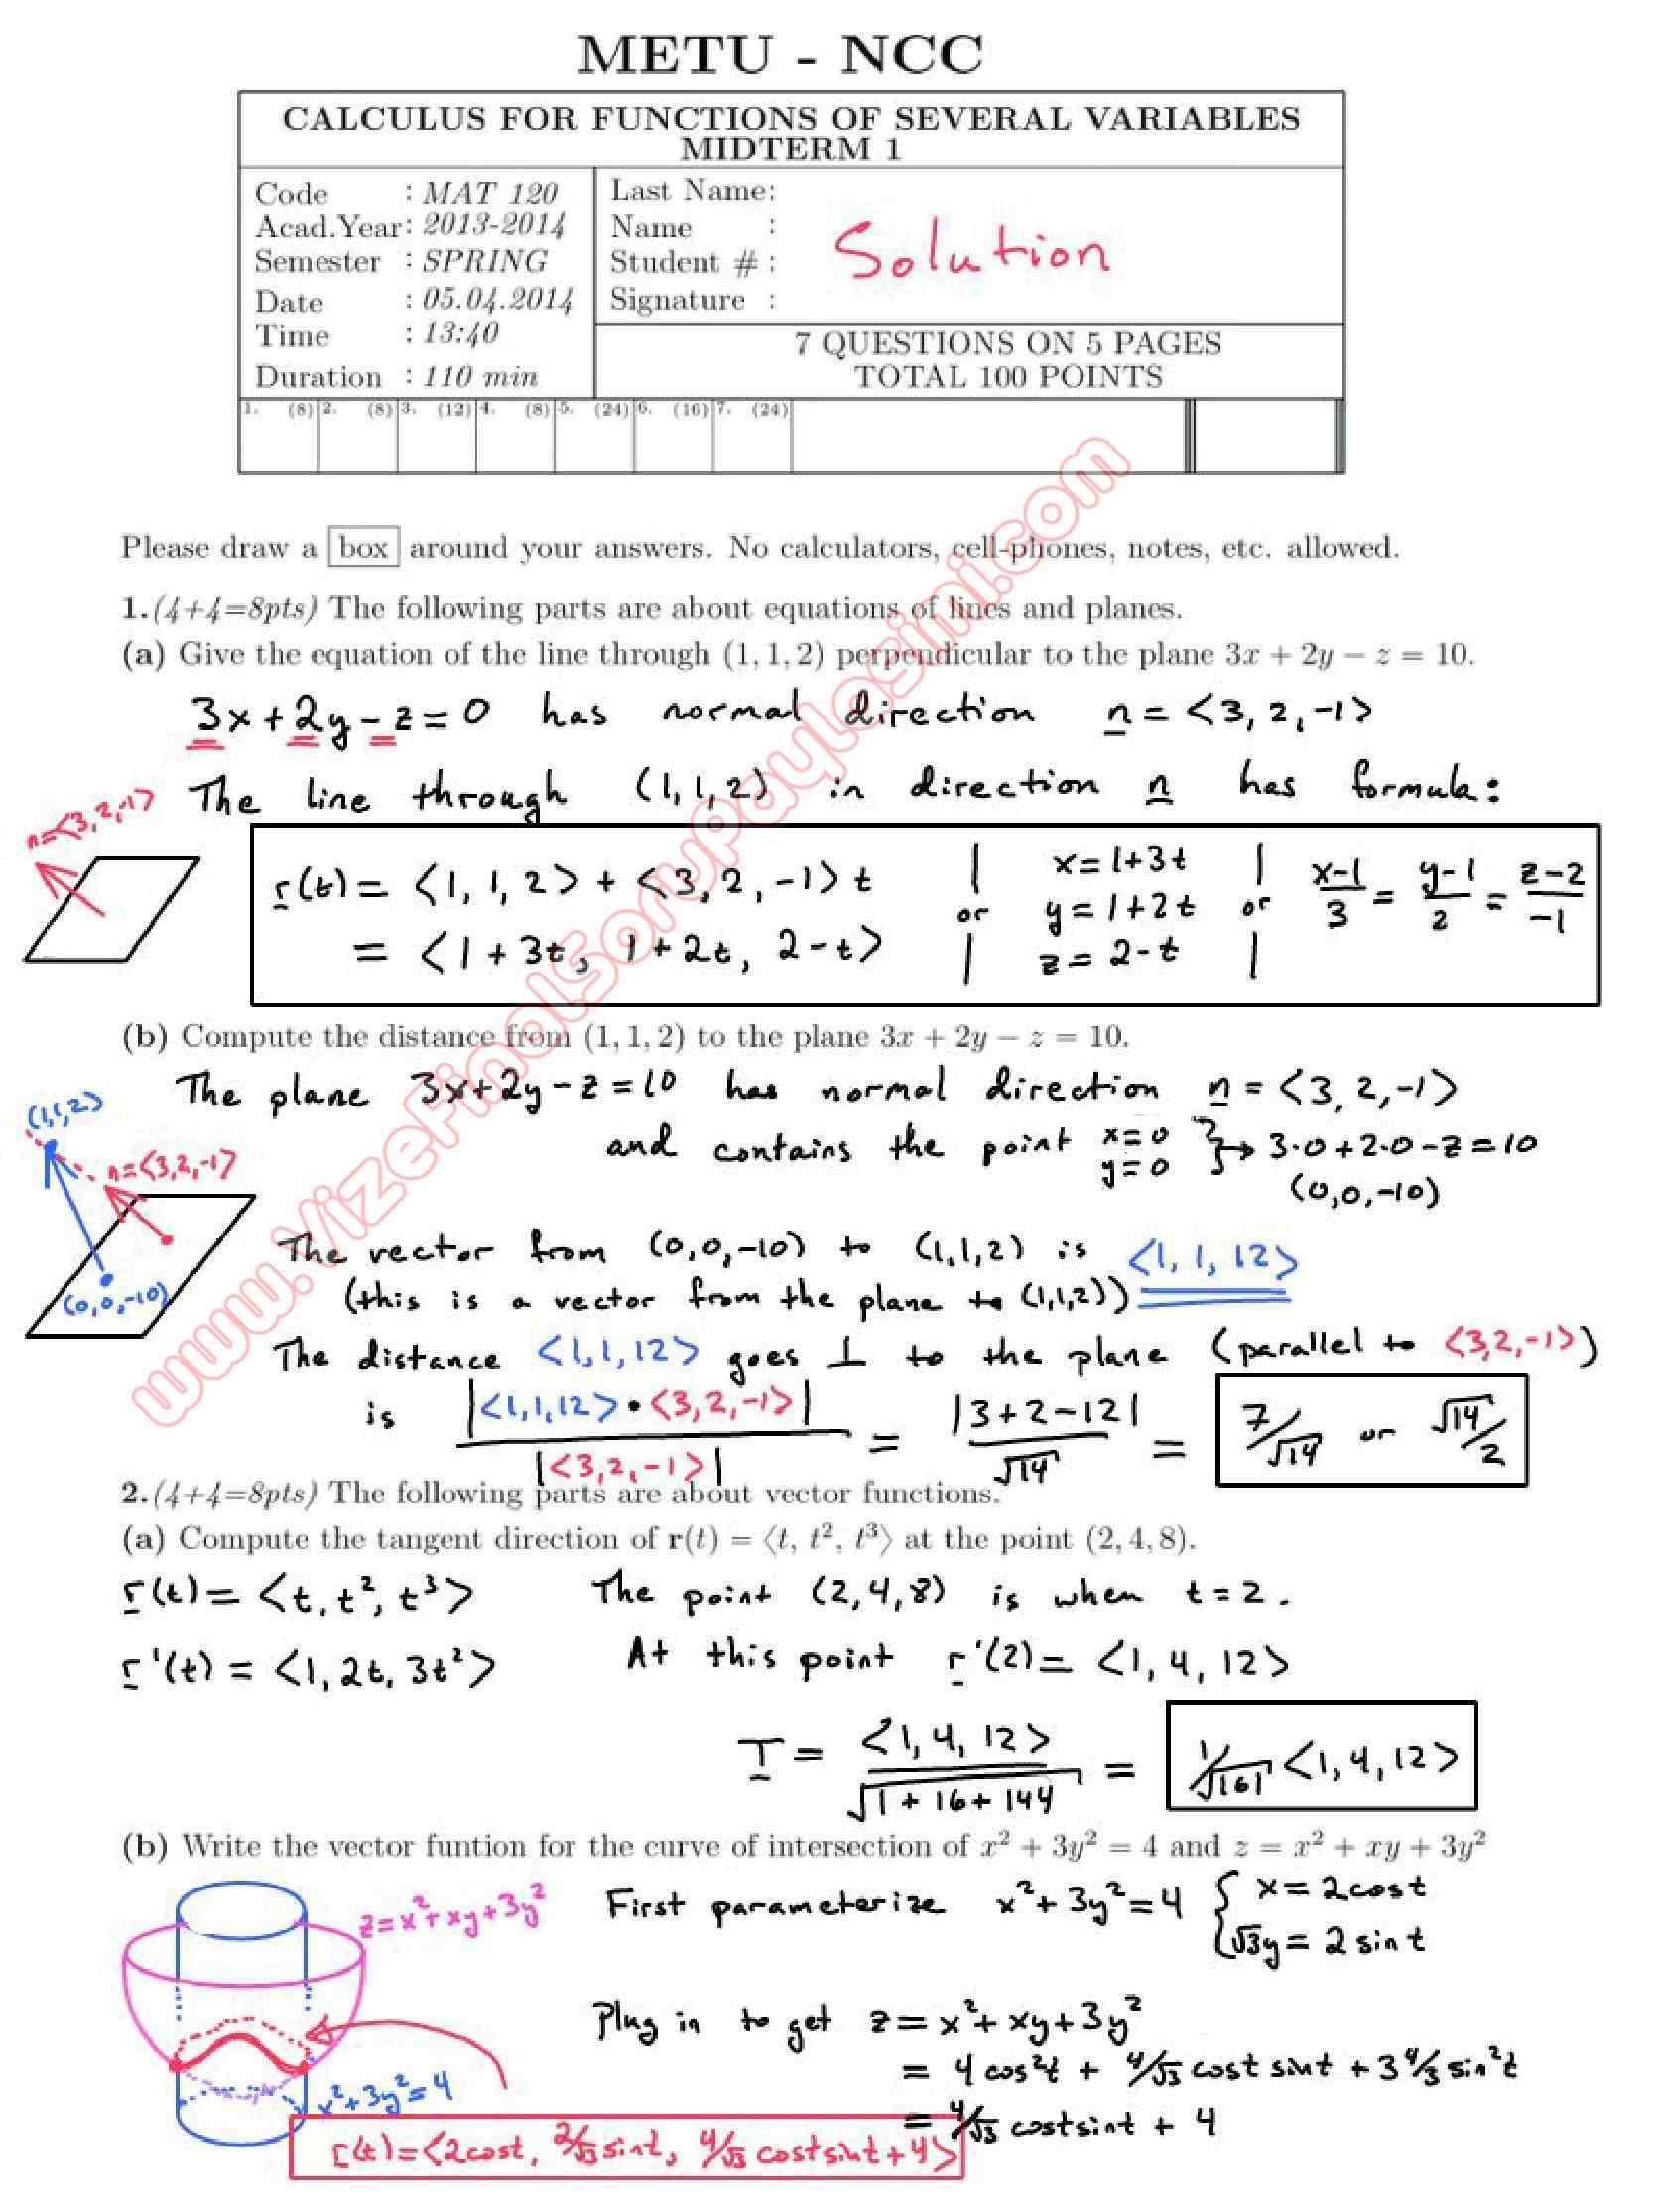 METU - NCC
CALCULUS FOR FUNCTIONS OF SEVERAL VARIABLES
MIDTERM 1
Code : MAT 120
Acad.Year: 2013-2014
Semester : SPRING
Date : 05.04.2014
Time : 13:40
Duration : 110 min
Last Name:
Name :
Student # :
Signature :
Solution
7 QUESTIONS ON 5 PAGES
TOTAL 100 POINTS
1. (8) 2. (8) 3. (12) 4. (8) 5. (24) 6. (16) 7. (24)
Please draw a box around your answers. No calculators, cell-phones, notes, etc. allowed.
1.(4+4=8pts) The following parts are about equations of lines and planes.
(a) Give the equation of the line through (1, 1, 2) perpendicular to the plane 3x + 2y − z = 10.
3x+2y-z=0 has normal direction n = <3, 2, -1>
The line through (1,1,2) in direction n has formula:
n=<3,2,-1>
r(t) = <1, 1, 2> + <3, 2, -1> t
= <1+3t, 1+2t, 2-t>
or
x=1+3t
y=1+2t
z=2-t
or
x-1/3 = y-1/2 = z-2/-1
(b) Compute the distance from (1, 1, 2) to the plane 3x + 2y − z = 10.
The plane 3x+2y-z=10 has normal direction n = <3, 2, -1>
and contains the point x=0 y=0 } → 3·0+2·0-z=10
(0,0,-10)
(1,1,2)
n=<3,2,-1>
(0,0,-10)
The vector from (0,0,-10) to (1,1,2) is <1, 1, 12>
(this is a vector from the plane to (1,1,2))
The distance <1,1,12> goes ⊥ to the plane (parallel to <3,2,-1>)
is |<1,1,12>•<3,2,-1>| / |<3,2,-1>| = |3+2-12| / √14 = 7/√14 or √14/2
2.(4+4=8pts) The following parts are about vector functions.
(a) Compute the tangent direction of r(t) = ⟨t, t², t³⟩ at the point (2, 4, 8).
r(t) = <t, t², t³> The point (2,4,8) is when t=2.
r'(t) = <1, 2t, 3t²> At this point r'(2) = <1, 4, 12>
T = <1, 4, 12> / √1+16+144 = 1/√161 <1, 4, 12>
(b) Write the vector funtion for the curve of intersection of x² + 3y² = 4 and z = x² + xy + 3y²
z=x²+xy+3y²
First parameterize x²+3y²=4 { x=2cost
√3y = 2 sin t
Plug in to get z = x²+xy+3y²
= 4cos²t + 4/√3 cost sint + 3 4/3 sin²t
= 4/√3 costsint + 4
x²+3y²=4
r(t)=<2cost, 2/√3 sint, 4/√3 costsint+4>
www.VizeFinalSoruPaylasimi.com